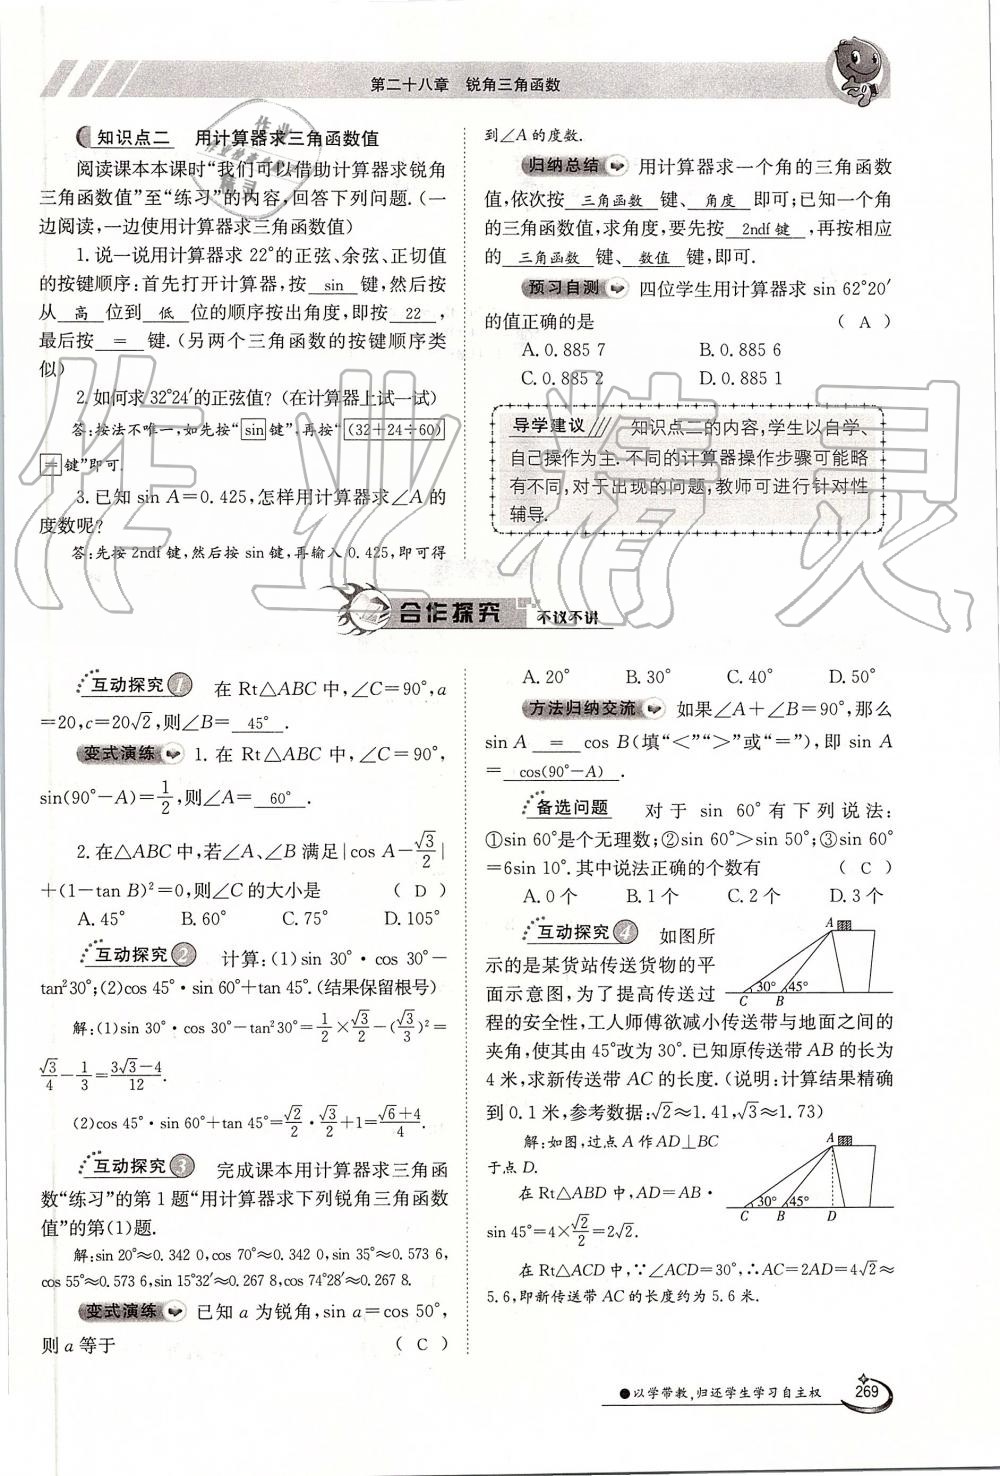 第二十八章　锐角三角函数
知识点二　用计算器求三角函数值
阅读课本本课时“我们可以借助计算器求锐角
三角函数值”至“练习”的内容,回答下列问题.(一
边阅读,一边使用计算器求三角函数值)
1.说一说用计算器求 22°的正弦、余弦、正切值
的按键顺序:首先打开计算器,按 sin 键,然后按
从 高 位到 低 位的顺序按出角度,即按 22 ,
最后按 = 键.(另两个三角函数的按键顺序类
似)
2.如何求32°24′的正弦值?(在计算器上试一试)
答:按法不唯一,如先按“sin键”,再按“(32+24÷60)
=键”即可.
3.已知 sin A=0.425,怎样用计算器求∠A 的
度数呢?
答:先按 2ndf 键,然后按 sin键,再输入 0.425,即可得
到∠A 的度数.
归纳总结　用计算器求一个角的三角函数
值,依次按 三角函数 键、 角度 即可;已知一个角
的三角函数值,求角度,要先按 2ndf 键 ,再按相应
的 三角函数 键、 数值 键,即可.
预习自测　四位学生用计算器求 sin 62°20′
的值正确的是 ( A )
A.0.885 7　B.0.885 6
C.0.885 2　D.0.885 1
导学建议　知识点二的内容,学生以自学、
自己操作为主.不同的计算器操作步骤可能略
有不同,对于出现的问题,教师可进行针对性
辅导.
合作探究　不议不讲
互动探究 1　在 Rt△ABC 中,∠C=90°,a
=20,c=20√2,则∠B= 45° .
变式演练　1.在 Rt△ABC 中,∠C=90°,
sin(90°−A)=1/2,则∠A= 60° .
2.在△ABC 中,若∠A、∠B 满足|cos A−√3/2|
+(1−tan B)²=0,则∠C 的大小是 ( D )
A.45°　B.60°　C.75°　D.105°
互动探究 2　计算:(1)sin 30°·cos 30°−
tan²30°;(2)cos 45°·sin 60°+tan 45°.(结果保留根号)
解:(1)sin 30°·cos 30°−tan²30°=1/2×√3/2−(√3/3)²=
√3/4−1/3=(3√3−4)/12.
(2)cos 45°·sin 60°+tan 45°=√2/2·√3/2+1=(√6+4)/4.
互动探究 3　完成课本用计算器求三角函
数“练习”的第 1 题“用计算器求下列锐角三角函数
值”的第(1)题.
解:sin 20°≈0.342 0,cos 70°≈0.342 0,sin 35°≈0.573 6,
cos 55°≈0.573 6,sin 15°32′≈0.267 8,cos 74°28′≈0.267 8.
变式演练　已知 a 为锐角,sin a=cos 50°,
则 a 等于 ( C )
A.20°　B.30°　C.40°　D.50°
方法归纳交流　如果∠A+∠B=90°,那么
sin A = cos B(填“<”“>”或“=”),即 sin A
= cos(90°−A) .
备选问题　对于 sin 60°有下列说法:
①sin 60°是个无理数;②sin 60°>sin 50°;③sin 60°
=6sin 10°.其中说法正确的个数有 ( C )
A.0 个　B.1 个　C.2 个　D.3 个
互动探究 4　如图所
示的是某货站传送货物的平
面示意图,为了提高传送过
程的安全性,工人师傅欲减小传送带与地面之间的
夹角,使其由 45°改为 30°.已知原传送带 AB 的长为
4 米,求新传送带 AC 的长度.(说明:计算结果精确
到 0.1 米,参考数据:√2≈1.41,√3≈1.73)
A
30° 45°
C B
解:如图,过点 A 作AD⊥BC
于点 D.
在 Rt△ABD 中,AD=AB·
sin 45°=4×√2/2=2√2.
A
30° 45°
C B D
在 Rt△ACD 中,∵∠ACD=30°,∴AC=2AD=4√2≈
5.6,即新传送带 AC 的长度约为 5.6 米.
●以学带教,归还学生学习自主权
269
作业精灵